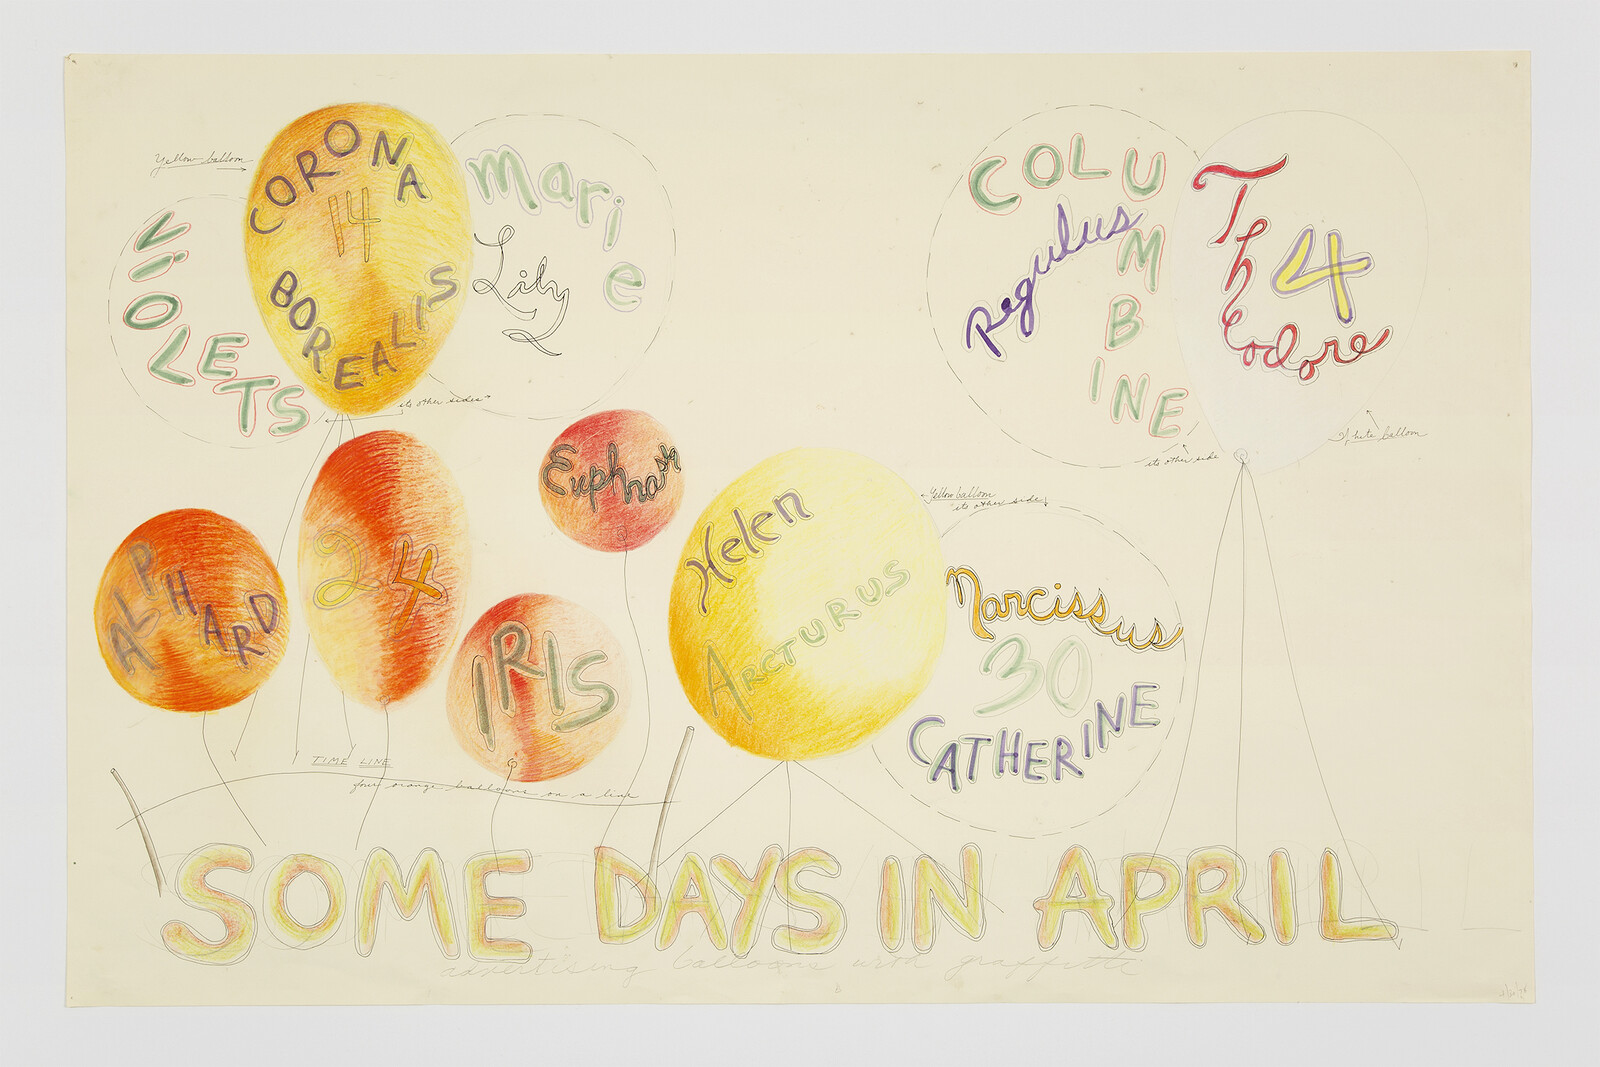 Yellow balloon
CORONA
14
BOREALIS
VIOLETS
Marie
Lily
its other sides
COLUMBINE
Regulus
Theodore
4
White balloon
its other side
ALPHARD
24
Euphrosk
IRIS
Helen
ARCTURUS
Yellow balloon
its other side
Narcissus
30
CATHERINE
TIME LINE
four orange balloons on a line
SOME DAYS IN APRIL
advertising balloons with graffitti